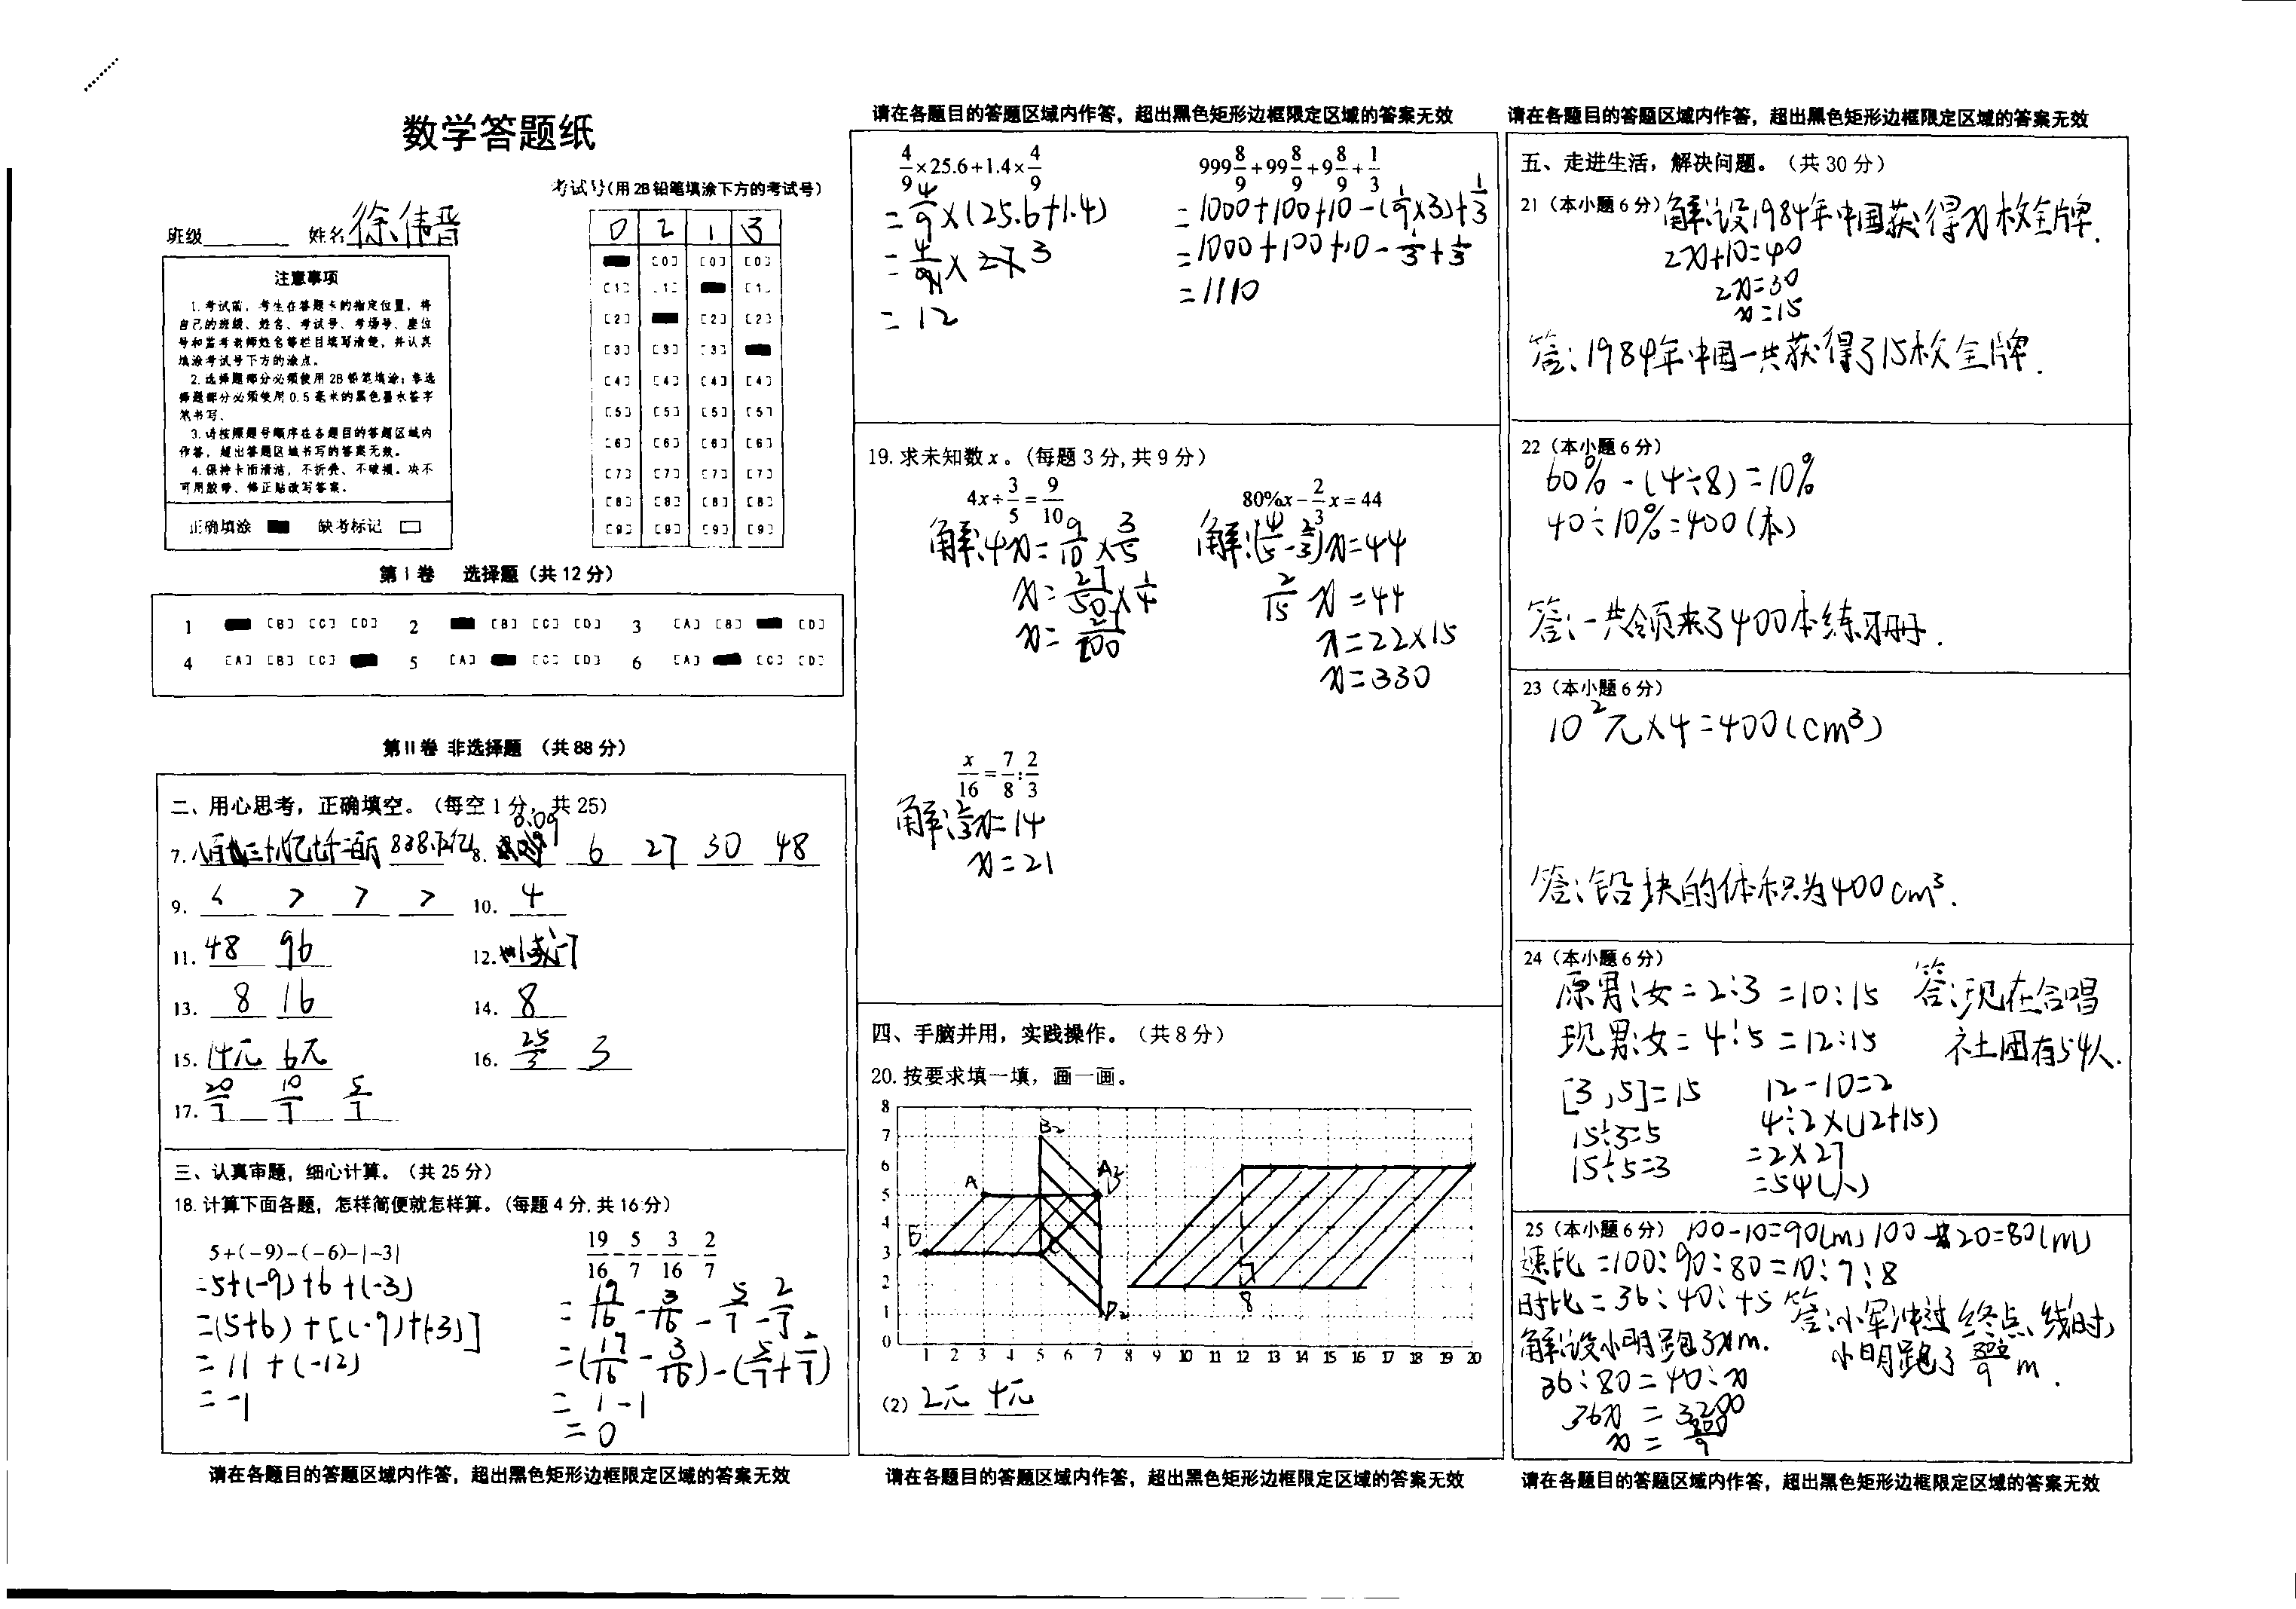 数学答题纸
考试号(用2B铅笔填涂下方的考试号)
班级 姓名 徐伟晋
0 2 1 3
注意事项
1.考试前，考生在答题卡的指定位置，将
自己的班级、姓名、考试号、考场号、座位
号和监考老师姓名等栏目填写清楚，并认真
填涂考试号下方的涂点。
2.选择题部分必须使用2B铅笔填涂；非选
择题部分必须使用0.5毫米的黑色墨水签字
笔书写。
3.请按照题号顺序在各题目的答题区域内
作答，超出答题区域书写的答案无效。
4.保持卡面清洁，不折叠、不破损。决不
可用胶带、修正贴改写答案。
正确填涂 缺考标记
[0] [0] [0]
[1] [1] [1]
[2] [2] [2]
[3] [3] [3]
[4] [4] [4] [4]
[5] [5] [5] [5]
[6] [6] [6] [6]
[7] [7] [7] [7]
[8] [8] [8] [8]
[9] [9] [9] [9]
第I卷 选择题（共12分）
1 [B] [C] [D] 2 [B] [C] [D] 3 [A] [B] [D]
4 [A] [B] [C] 5 [A] [C] [D] 6 [A] [C] [D]
第II卷 非选择题 （共88分）
二、用心思考，正确填空。（每空1分，共25）
7. 8. 0.09 6 27 30 48
9. < > > > 10. 4
11. 48 96 12.
13. 8 16 14. 8
15. 14元 6元 16. 25/3 3
17. 20/7 10/7 5/7
三、认真审题，细心计算。（共25分）
18.计算下面各题，怎样简便就怎样算。（每题4分,共16分）
5+(−9)−(−6)−|−3|
=5+(-9)+6+(-3)
=(5+6)+[(-9)+(-3)]
=11+(-12)
=-1
19/16−5/7−3/16−2/7
=19/16-3/16-5/7-2/7
=(19/16-3/16)-(5/7+2/7)
=1-1
=0
请在各题目的答题区域内作答，超出黑色矩形边框限定区域的答案无效
请在各题目的答题区域内作答，超出黑色矩形边框限定区域的答案无效
4/9×25.6+1.4×4/9
=4/9×(25.6+1.4)
=4/9×27 3
=12
999 8/9+99 8/9+9 8/9+1/3
=1000+100+10-(1/9×3)+1/3
=1000+100+10-1/3+1/3
=1110
19.求未知数x。（每题3分,共9分）
4x÷3/5=9/10
解:4x=9/10×3/5
x=27/50×1/4
x=27/200
80%x−2/3x=44
解:(4/5-2/3)x=44
2/15x=44
x=22×15
x=330
x/16=7/8:2/3
解:2/3x=14
x=21
四、手脑并用，实践操作。（共8分）
20.按要求填一填，画一画。
8
7 B2
6 A2
5 A D
4
3 B C
2 7
1 D2 8
0
1 2 3 4 5 6 7 8 9 10 11 12 13 14 15 16 17 18 19 20
(2) 2π 4π
请在各题目的答题区域内作答，超出黑色矩形边框限定区域的答案无效
请在各题目的答题区域内作答，超出黑色矩形边框限定区域的答案无效
五、走进生活，解决问题。（共30分）
21（本小题6分）解:设1984年中国获得x枚金牌.
2x+10=40
2x=30
x=15
答:1984年中国一共获得了15枚金牌.
22（本小题6分）
60%-(4÷8)=10%
40÷10%=400(本)
答:一共领来了400本练习册.
23（本小题6分）
10²π×4=400(cm³)
答:铅块的体积为400cm³.
24（本小题6分）
原男:女=2:3=10:15
现男:女=4:5=12:15
[3,5]=15
15÷3=5
15÷5=3
12-10=2
4÷2×(12+15)
=2×27
=54(人)
答:现在合唱
社团有54人.
25（本小题6分） 100-10=90(m) 100-20=80(m)
速比=100:90:80=10:9:8
时比=36:40:45
解:设小明跑了xm.
36:80=40:x
36x=3200
x=800/9
答:小军冲过终点线时,
小明跑了800/9m.
请在各题目的答题区域内作答，超出黑色矩形边框限定区域的答案无效